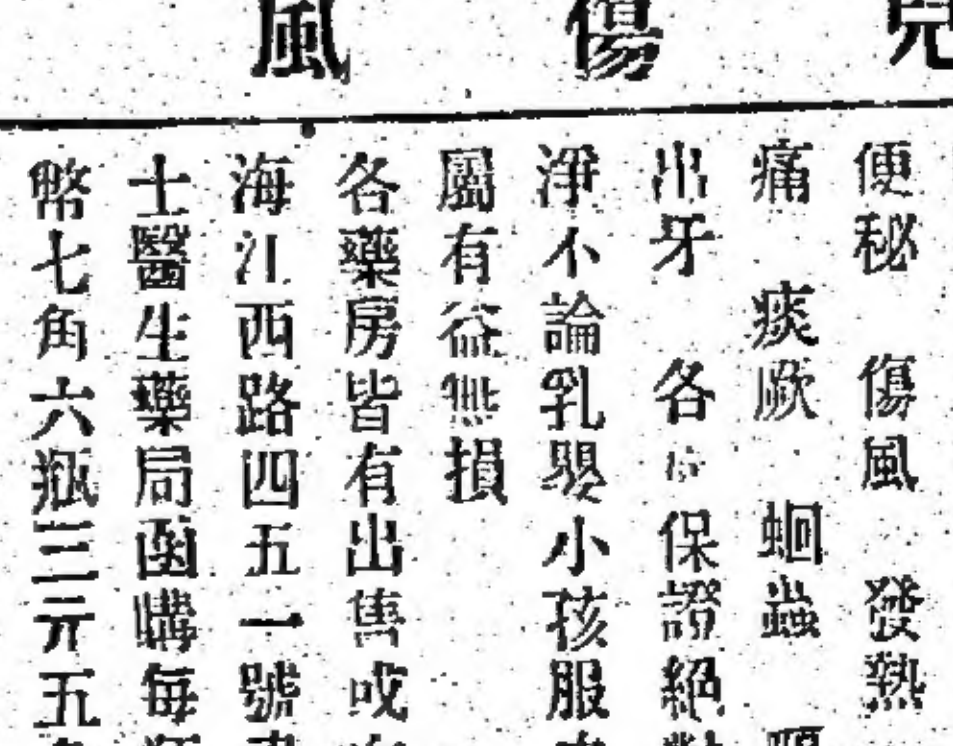 兒傷風
便秘 傷風 發熱
痛 痰厥 蛔蟲
出牙 各 保證絕
淨不論乳嬰小孩服
屬有益無損
各藥房皆有出售或
海江西路四五一號
士醫生藥局函購每
幣七角六瓶三元五